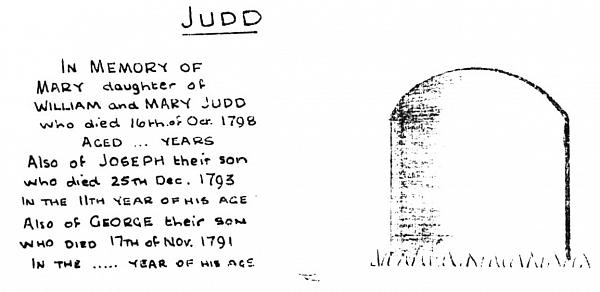 JUDD
IN MEMORY OF
MARY daughter of
WILLIAM and MARY JUDD
who died 16th of Oct. 1798
AGED ... YEARS
Also of JOSEPH their son
who died 25TH Dec. 1793
IN THE 11TH YEAR OF HIS AGE
Also of GEORGE their SON
WHO DIED 17TH of Nov. 1791
IN THE ..... YEAR OF HIS AGE